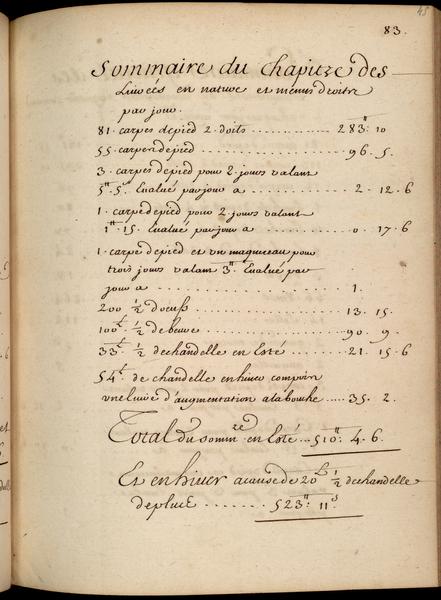 45
83.
Sommaire du Chapitre des
Livrées en nature et menus droits
par jour.
81. carpes de pied 2. doits ............ 283ᵗᵗ 10
55. carpes de pied ............ 96. 5.
3. carpes de pied pour 2. jours valant
5ᵗᵗ. 5ˢ. Evalué par jour a ............ 2. 12. 6
1. carpe de pied pour 2. jours valant
1ᵗᵗ. 15. Evalué par jour a ............ 0. 17. 6
1. carpe de pied et un maquereau pour
trois jours valant 3ᵗᵗ. Evalué par
jour a ............ 1.
200 ½ d'oeufs ............ 13. 15.
100ᵗ. ½ de beure ............ 90. 9.
33ᵗ. ½ de chandelle en Esté ............ 21. 15. 6
54ᵗ. de chandelle en hiver compris
une livre d'augmentation a la bouche ..... 35. 2.
Total du Sommʳᵉ en Esté ... 510ᵗᵗ. 4. 6.
Et en hiver a cause de 20ᴸ ½ de chandelle
de plus ....... 523ᵗᵗ. 11ˢ.